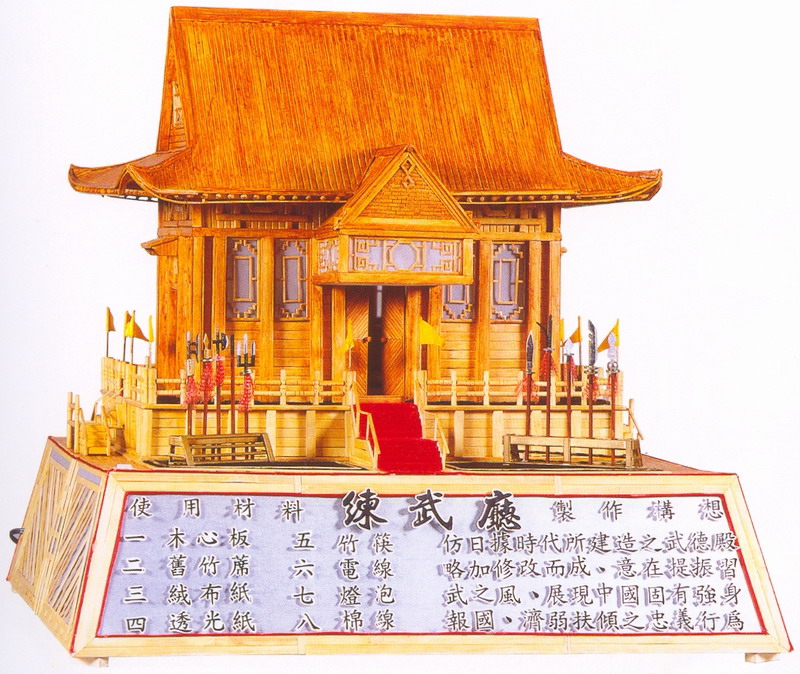 使用材料 練武廳 製作構想
一 木心板 五 竹筷 仿日據時代所建造之武德殿
二 舊竹蓆 六 電線 略加修改而成、意在提振習
三 絨布紙 七 燈泡 武之風、展現中國固有強身
四 透光紙 八 棉線 報國、濟弱扶傾之忠義行爲